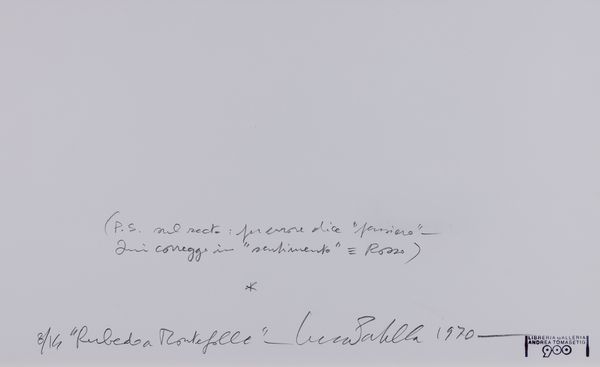 (P.S. sul recto: per errore dice "pensiero" —
Qui correggo in "sentimento" ≡ Rosso)
*
8/14 "Rubedo a Montefolle" — Luca Patella 1970 —
LIBRERIA GALLERIA
ANDREA TOMASETIG
900